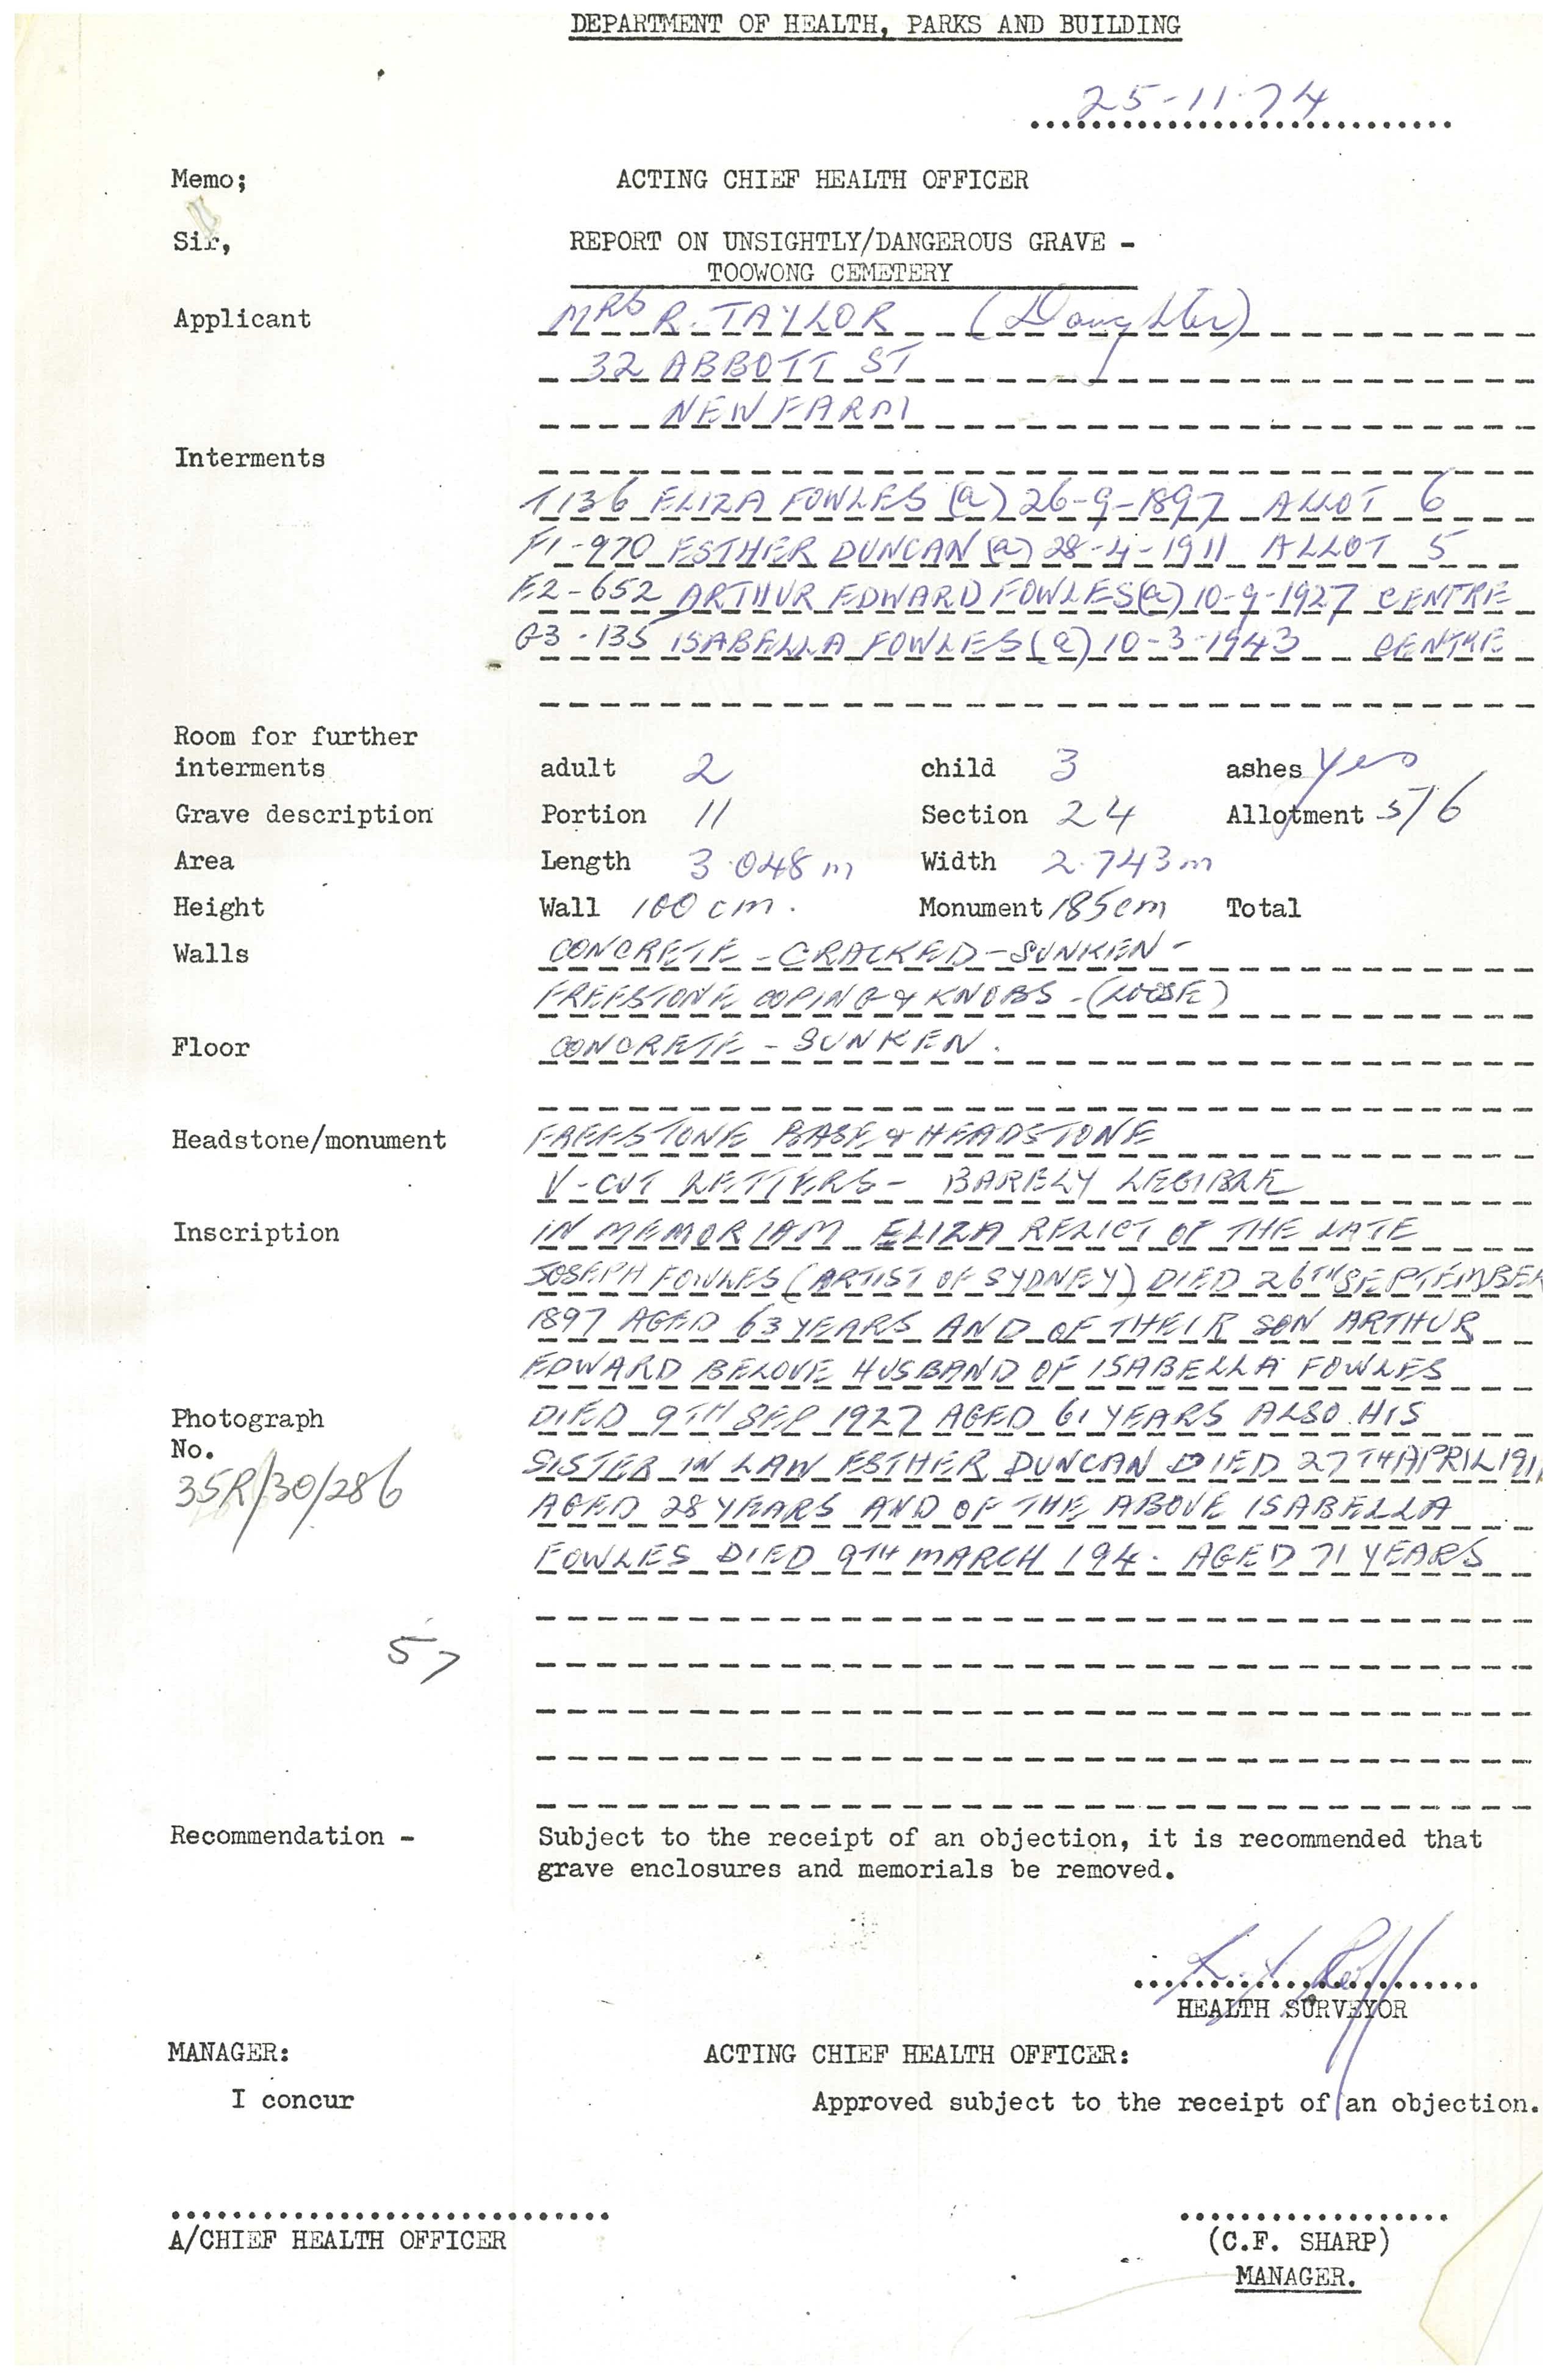 DEPARTMENT OF HEALTH, PARKS AND BUILDING
25-11-74
Memo; ACTING CHIEF HEALTH OFFICER
Sir, REPORT ON UNSIGHTLY/DANGEROUS GRAVE -
TOOWONG CEMETERY
Applicant MRS R. TAYLOR (Daughter)
32 ABBOTT ST
NEW FARM
Interments
1136 ELIZA FOWLES (a) 26-9-1897 ALLOT 6
F1-970 ESTHER DUNCAN (a) 28-4-1911 ALLOT 5
E2-652 ARTHUR EDWARD FOWLES (a) 10-9-1927 CENTRE
G3-135 ISABELLA FOWLES (a) 10-3-1943 CENTRE
Room for further
interments adult 2 child 3 ashes yes
Grave description Portion 11 Section 24 Allotment 5/6
Area Length 3.048m Width 2.743m
Height Wall 100 cm. Monument 185cm Total
Walls CONCRETE - CRACKED - SUNKEN -
FREESTONE COPING & KNOBS - (LOOSE)
Floor CONCRETE - SUNKEN.
Headstone/monument FREESTONE BASE & HEADSTONE
V-CUT LETTERS - BARELY LEGIBLE
Inscription IN MEMORIAM ELIZA RELICT OF THE LATE
JOSEPH FOWLES (ARTIST OF SYDNEY) DIED 26TH SEPTEMBER
1897 AGED 63 YEARS AND OF THEIR SON ARTHUR
EDWARD BELOVE HUSBAND OF ISABELLA FOWLES
Photograph DIED 9TH SEP 1927 AGED 61 YEARS ALSO HIS
No. SISTER IN LAW ESTHER DUNCAN DIED 27TH APRIL 1911
35R/30/286 AGED 28 YEARS AND OF THE ABOVE ISABELLA
FOWLES DIED 9TH MARCH 194. AGED 71 YEARS
57
Recommendation - Subject to the receipt of an objection, it is recommended that
grave enclosures and memorials be removed.
HEALTH SURVEYOR
MANAGER: ACTING CHIEF HEALTH OFFICER:
I concur Approved subject to the receipt of an objection.
A/CHIEF HEALTH OFFICER (C.F. SHARP)
MANAGER.